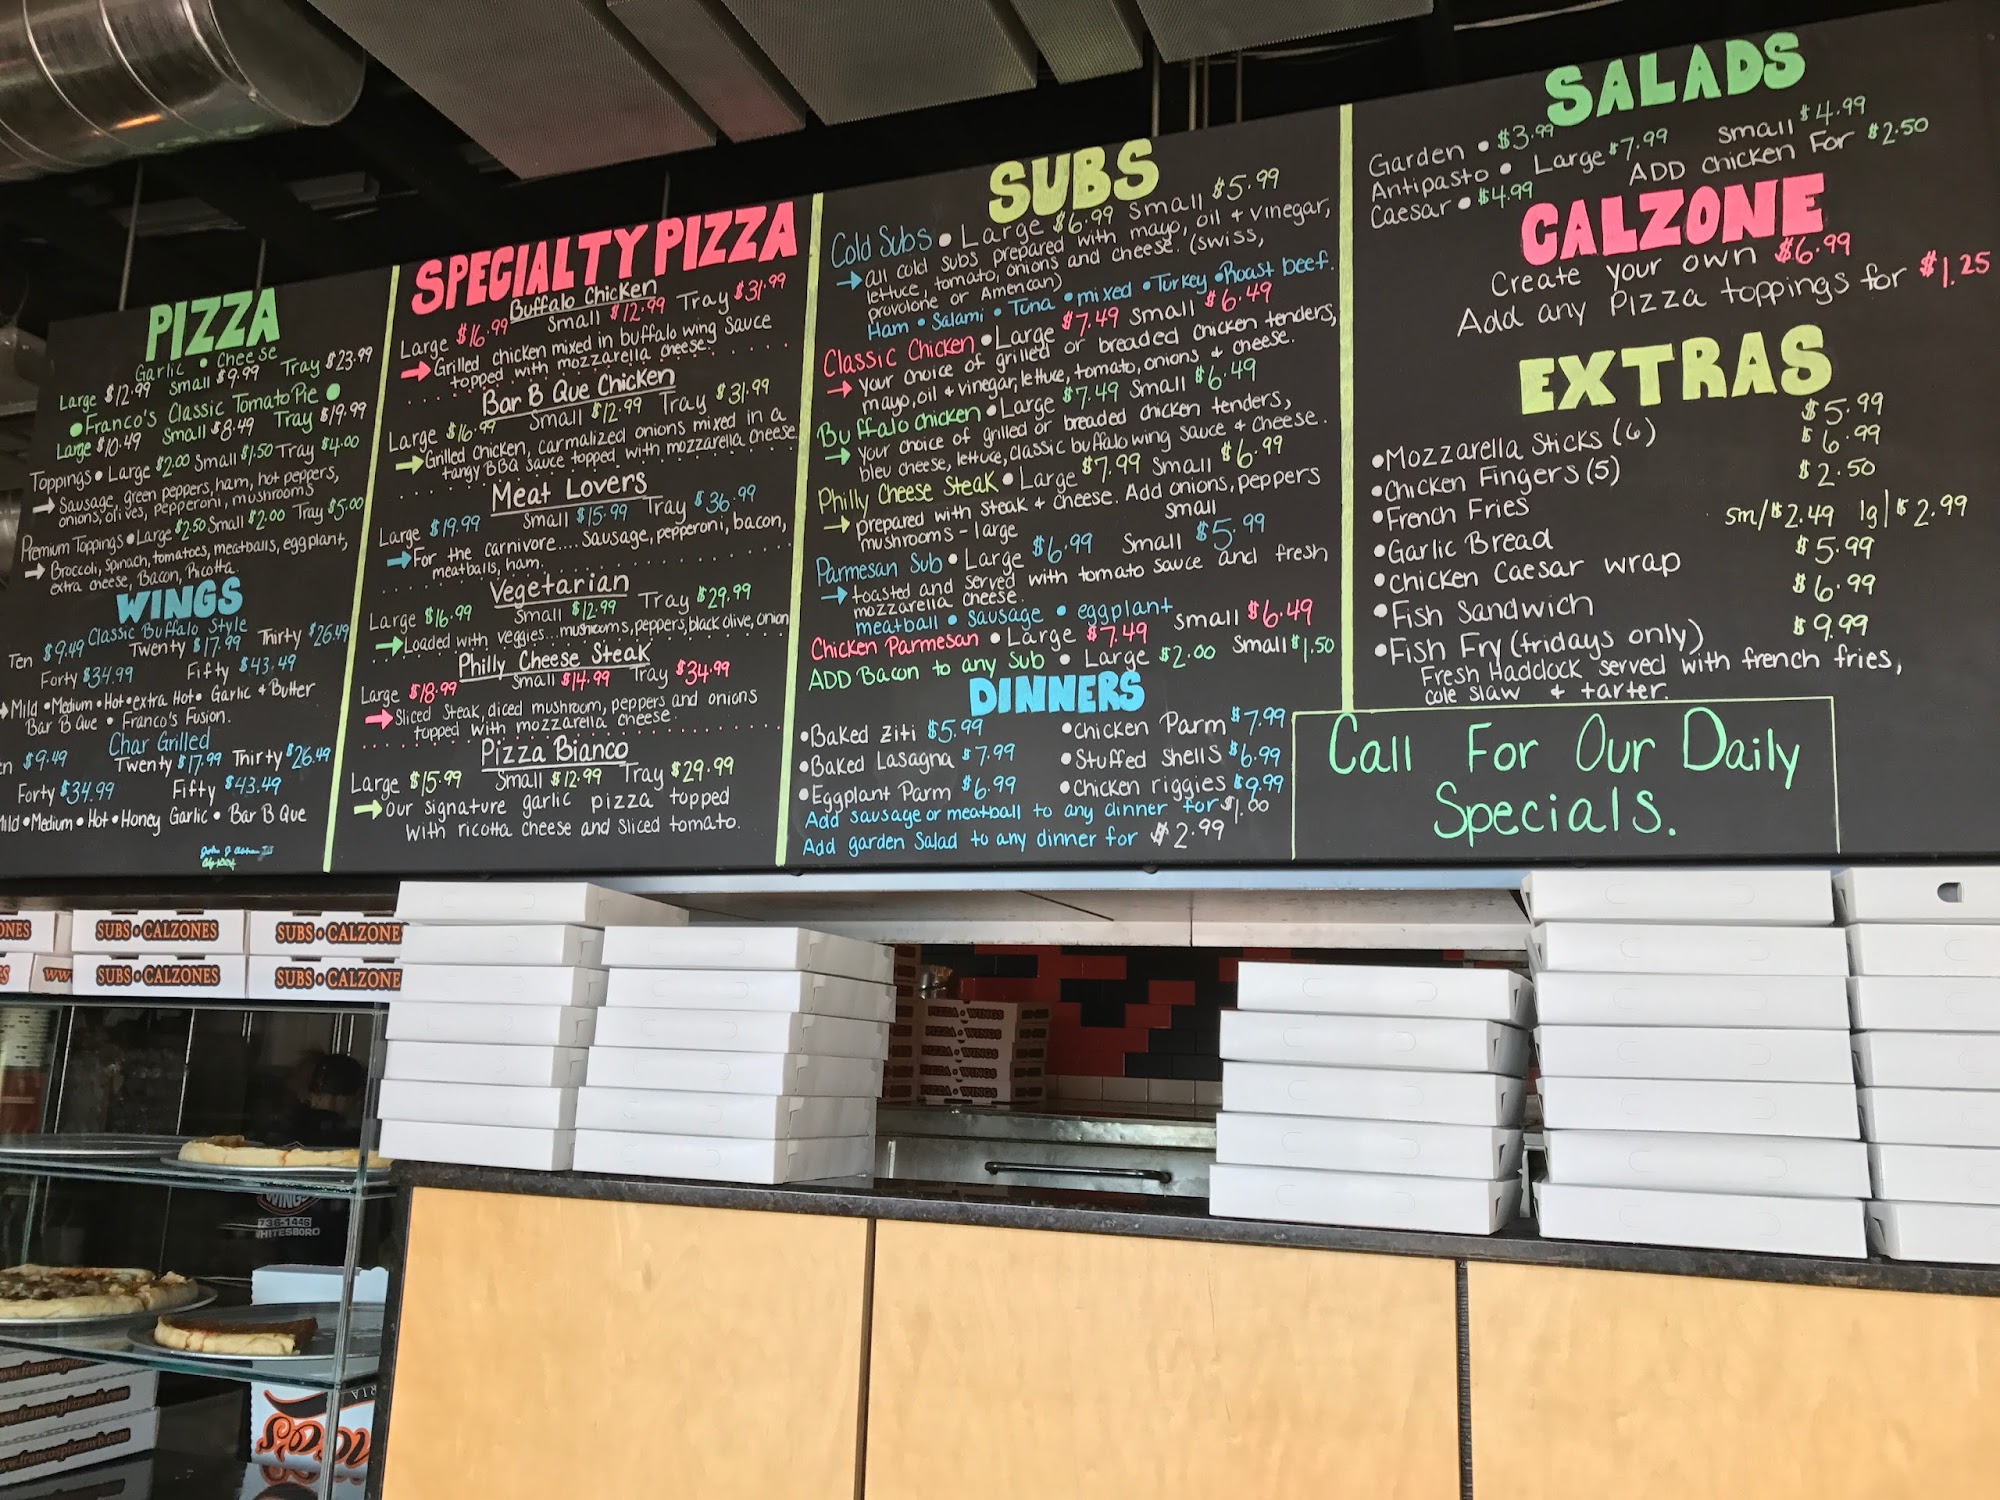 PIZZA
Garlic • Cheese
Large $12.99 Small $9.99 Tray $23.99
• Franco's Classic Tomato Pie •
Large $10.49 Small $8.49 Tray $19.99
Toppings • Large $2.00 Small $1.50 Tray $4.00
→ Sausage, green peppers, ham, hot peppers,
onions, olives, pepperoni, mushrooms
Premium Toppings • Large $2.50 Small $2.00 Tray $5.00
→ Broccoli, Spinach, tomatoes, meatballs, eggplant,
extra cheese, Bacon, Ricotta
WINGS
Classic Buffalo Style
Ten $9.49 Twenty $17.99 Thirty $26.49
Forty $34.99 Fifty $43.49
→ Mild • Medium • Hot • extra Hot • Garlic & Butter
Bar B Que • Franco's Fusion.
Char Grilled
en $9.49 Twenty $17.99 Thirty $26.49
Forty $34.99 Fifty $43.49
Mild • Medium • Hot • Honey Garlic • Bar B Que
SPECIALTY PIZZA
Buffalo Chicken
Large $16.99 Small $12.99 Tray $31.99
→ Grilled chicken mixed in buffalo wing Sauce
topped with mozzarella cheese
Bar B Que Chicken
Large $16.99 Small $12.99 Tray $31.99
→ Grilled chicken, carmalized onions mixed in a
tangy BBQ sauce topped with mozzarella cheese
Meat Lovers
Large $19.99 Small $15.99 Tray $36.99
→ For the carnivore.... Sausage, pepperoni, bacon,
meatballs, ham.
Vegetarian
Large $16.99 Small $12.99 Tray $29.99
→ Loaded with veggies... mushrooms, peppers, black olive, onion
Philly Cheese Steak
Large $18.99 Small $14.99 Tray $34.99
→ Sliced Steak, diced mushroom, peppers and onions
topped with mozzarella cheese.
Pizza Bianco
Large $15.99 Small $12.99 Tray $29.99
→ Our signature garlic pizza topped
with ricotta cheese and sliced tomato.
SUBS
Cold Subs • Large $6.99 Small $5.99
→ all cold subs prepared with mayo, oil & vinegar,
lettuce, tomato, onions and cheese. (swiss,
provolone or American)
Ham • Salami • Tuna • mixed • Turkey • Roast beef.
Classic Chicken • Large $7.49 Small $6.49
→ your choice of grilled or breaded chicken tenders,
mayo, oil & vinegar, lettuce, tomato, onions & cheese.
Buffalo chicken • Large $7.49 Small $6.49
→ your choice of grilled or breaded chicken tenders,
bleu cheese, lettuce, classic buffalo wing sauce & cheese.
Philly Cheese Steak • Large $7.99 Small $6.99
→ prepared with steak & cheese. Add onions, peppers
mushrooms - large small
Parmesan Sub • Large $6.99 Small $5.99
→ toasted and served with tomato sauce and fresh
mozzarella cheese.
meatball • sausage • eggplant
Chicken Parmesan • Large $7.49 Small $6.49
ADD Bacon to any Sub • Large $2.00 Small $1.50
DINNERS
• Baked Ziti $5.99 • Chicken Parm $7.99
• Baked Lasagna $7.99 • Stuffed Shells $6.99
• Eggplant Parm $6.99 • Chicken riggies $9.99
Add sausage or meatball to any dinner for $1.00
Add garden Salad to any dinner for $2.99
SALADS
Garden • $3.99
Antipasto • Large $7.99 small $4.99
Caesar • $4.99 ADD chicken For $2.50
CALZONE
Create your own $6.99
Add any Pizza toppings for $1.25
EXTRAS
• Mozzarella Sticks (6) $5.99
• Chicken Fingers (5) $6.99
• French Fries $2.50
• Garlic Bread sm/$2.49 lg/$2.99
• Chicken Caesar wrap $5.99
• Fish Sandwich $6.99
• Fish Fry (fridays only) $9.99
Fresh Haddock served with french fries,
cole slaw & tarter.
Call For Our Daily
Specials.
ONES SUBS • CALZONES SUBS • CALZONE
S ww SUBS • CALZONES SUBS • CALZONE
PIZZA • WINGS
PIZZA • WINGS
PIZZA • WINGS
PIZZA • WINGS
PIZZA • WINGS
WINGS
736-1446
WHITESBORO
www.francospizzawb.com
www.francospizzawb.com
www.francospizzawb.com